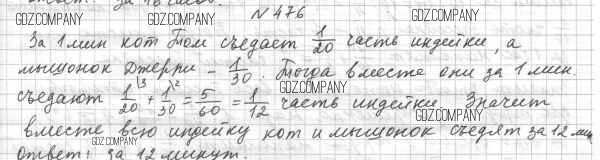 ответ: за
GDZ.COMPANY GDZ.COMPANY N 476 GDZ.COMPANY
За 1 мин кот Том съедает 1/20 часть индейки, а
мышонок Джерри – 1/30. Тогда вместе они за 1 мин.
GDZ.COMPANY GDZ.COMPANY
съедают 1/20 \3 + 1/30 \2 = 5/60 = 1/12 часть индейки. Значит
GDZ.COMPANY GDZ.COMPANY
вместе всю индейку кот и мышонок съедят за 12 мин
GDZ.COMPANY GDZ.COMPANY
ответ: за 12 минут.